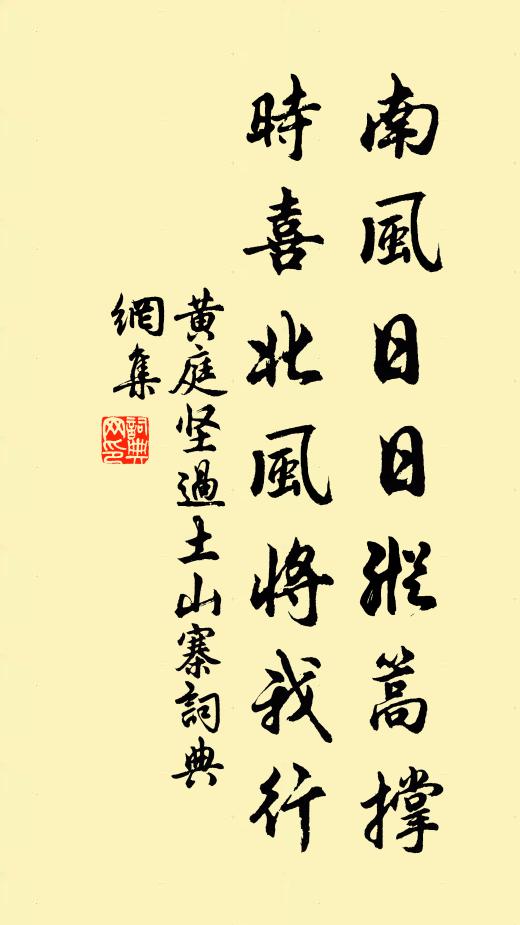 南風日日縱篙撑
時喜北風將我行
黄庭坚過土山寨詞典
網集
詞典
网印